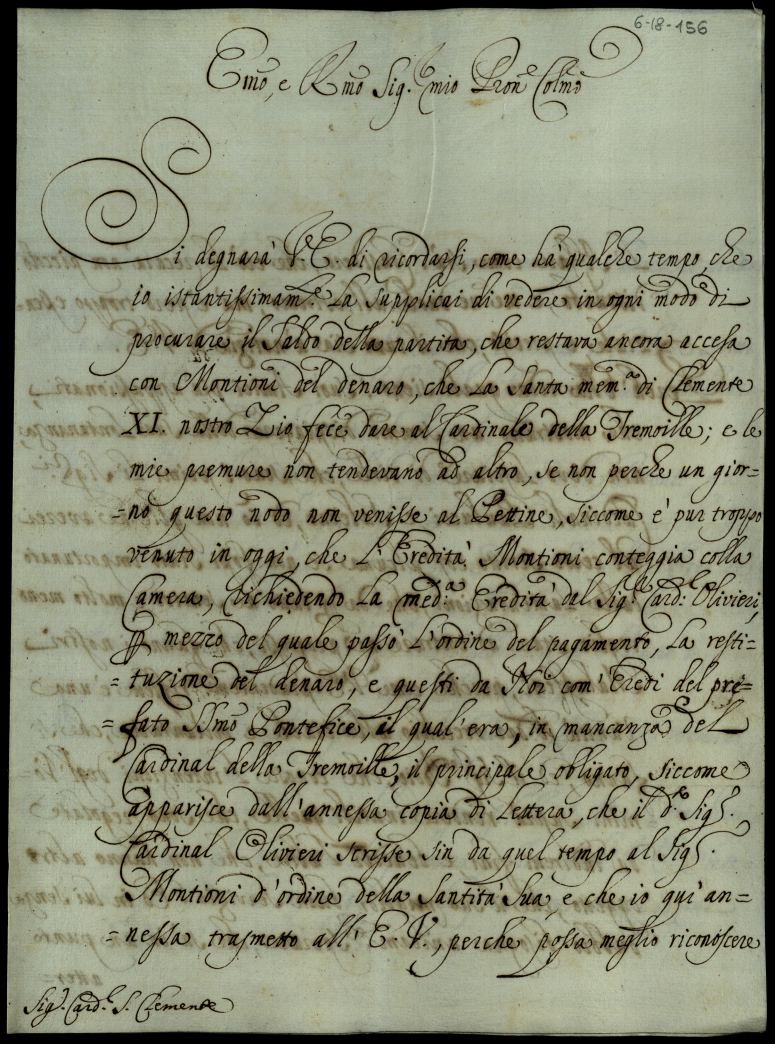 6-18-156
Emo, e Rmo Sig. mio Pron Colmo
Si degnarà V.E. di ricordarsi, come hà qualche tempo, che
io istantissimam.te La supplicai di vedere in ogni modo di
procurare il Saldo della partita, che restava ancora accesa
con Montioni del denaro, che La Santa mem.a di Clemente
XI. nostro Zio fece dare al Cardinale della Tremoille; e le
mie premure non tendevano ad altro, se non perche un gior=
=no questo nodo non venisse al Pettine, siccome è pur troppo
venuto in oggi, che L'Eredità Montioni conteggia colla
Camera, richiedendo La med.a Eredità dal Sig.r Card.l Olivieri,
per mezzo del quale passò L'ordine del pagamento, La resti=
=tuzione del denaro, e questi da Noi com' Eredi del pre=
=fato SSmo Pontefice, il qual'era, in mancanza del
Cardinal della Tremoille, il principale obligato, siccome
apparisce dall'annessa copia di Lettera, che il d.o Sig.r
Cardinal Olivieri scrisse sin da quel tempo al Sig.r
Montioni d'ordine della Santità Sua, e che io quì an=
=nessa trasmetto all' E.V., perche possa meglio riconoscere
Sig.r Card.l S. Clemente